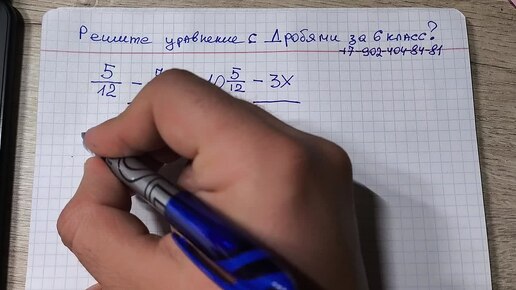 Решите уравнение с Дробями за 6 класс?
+7-902-404-84-81
5/12 - 10 5/12 - 3x